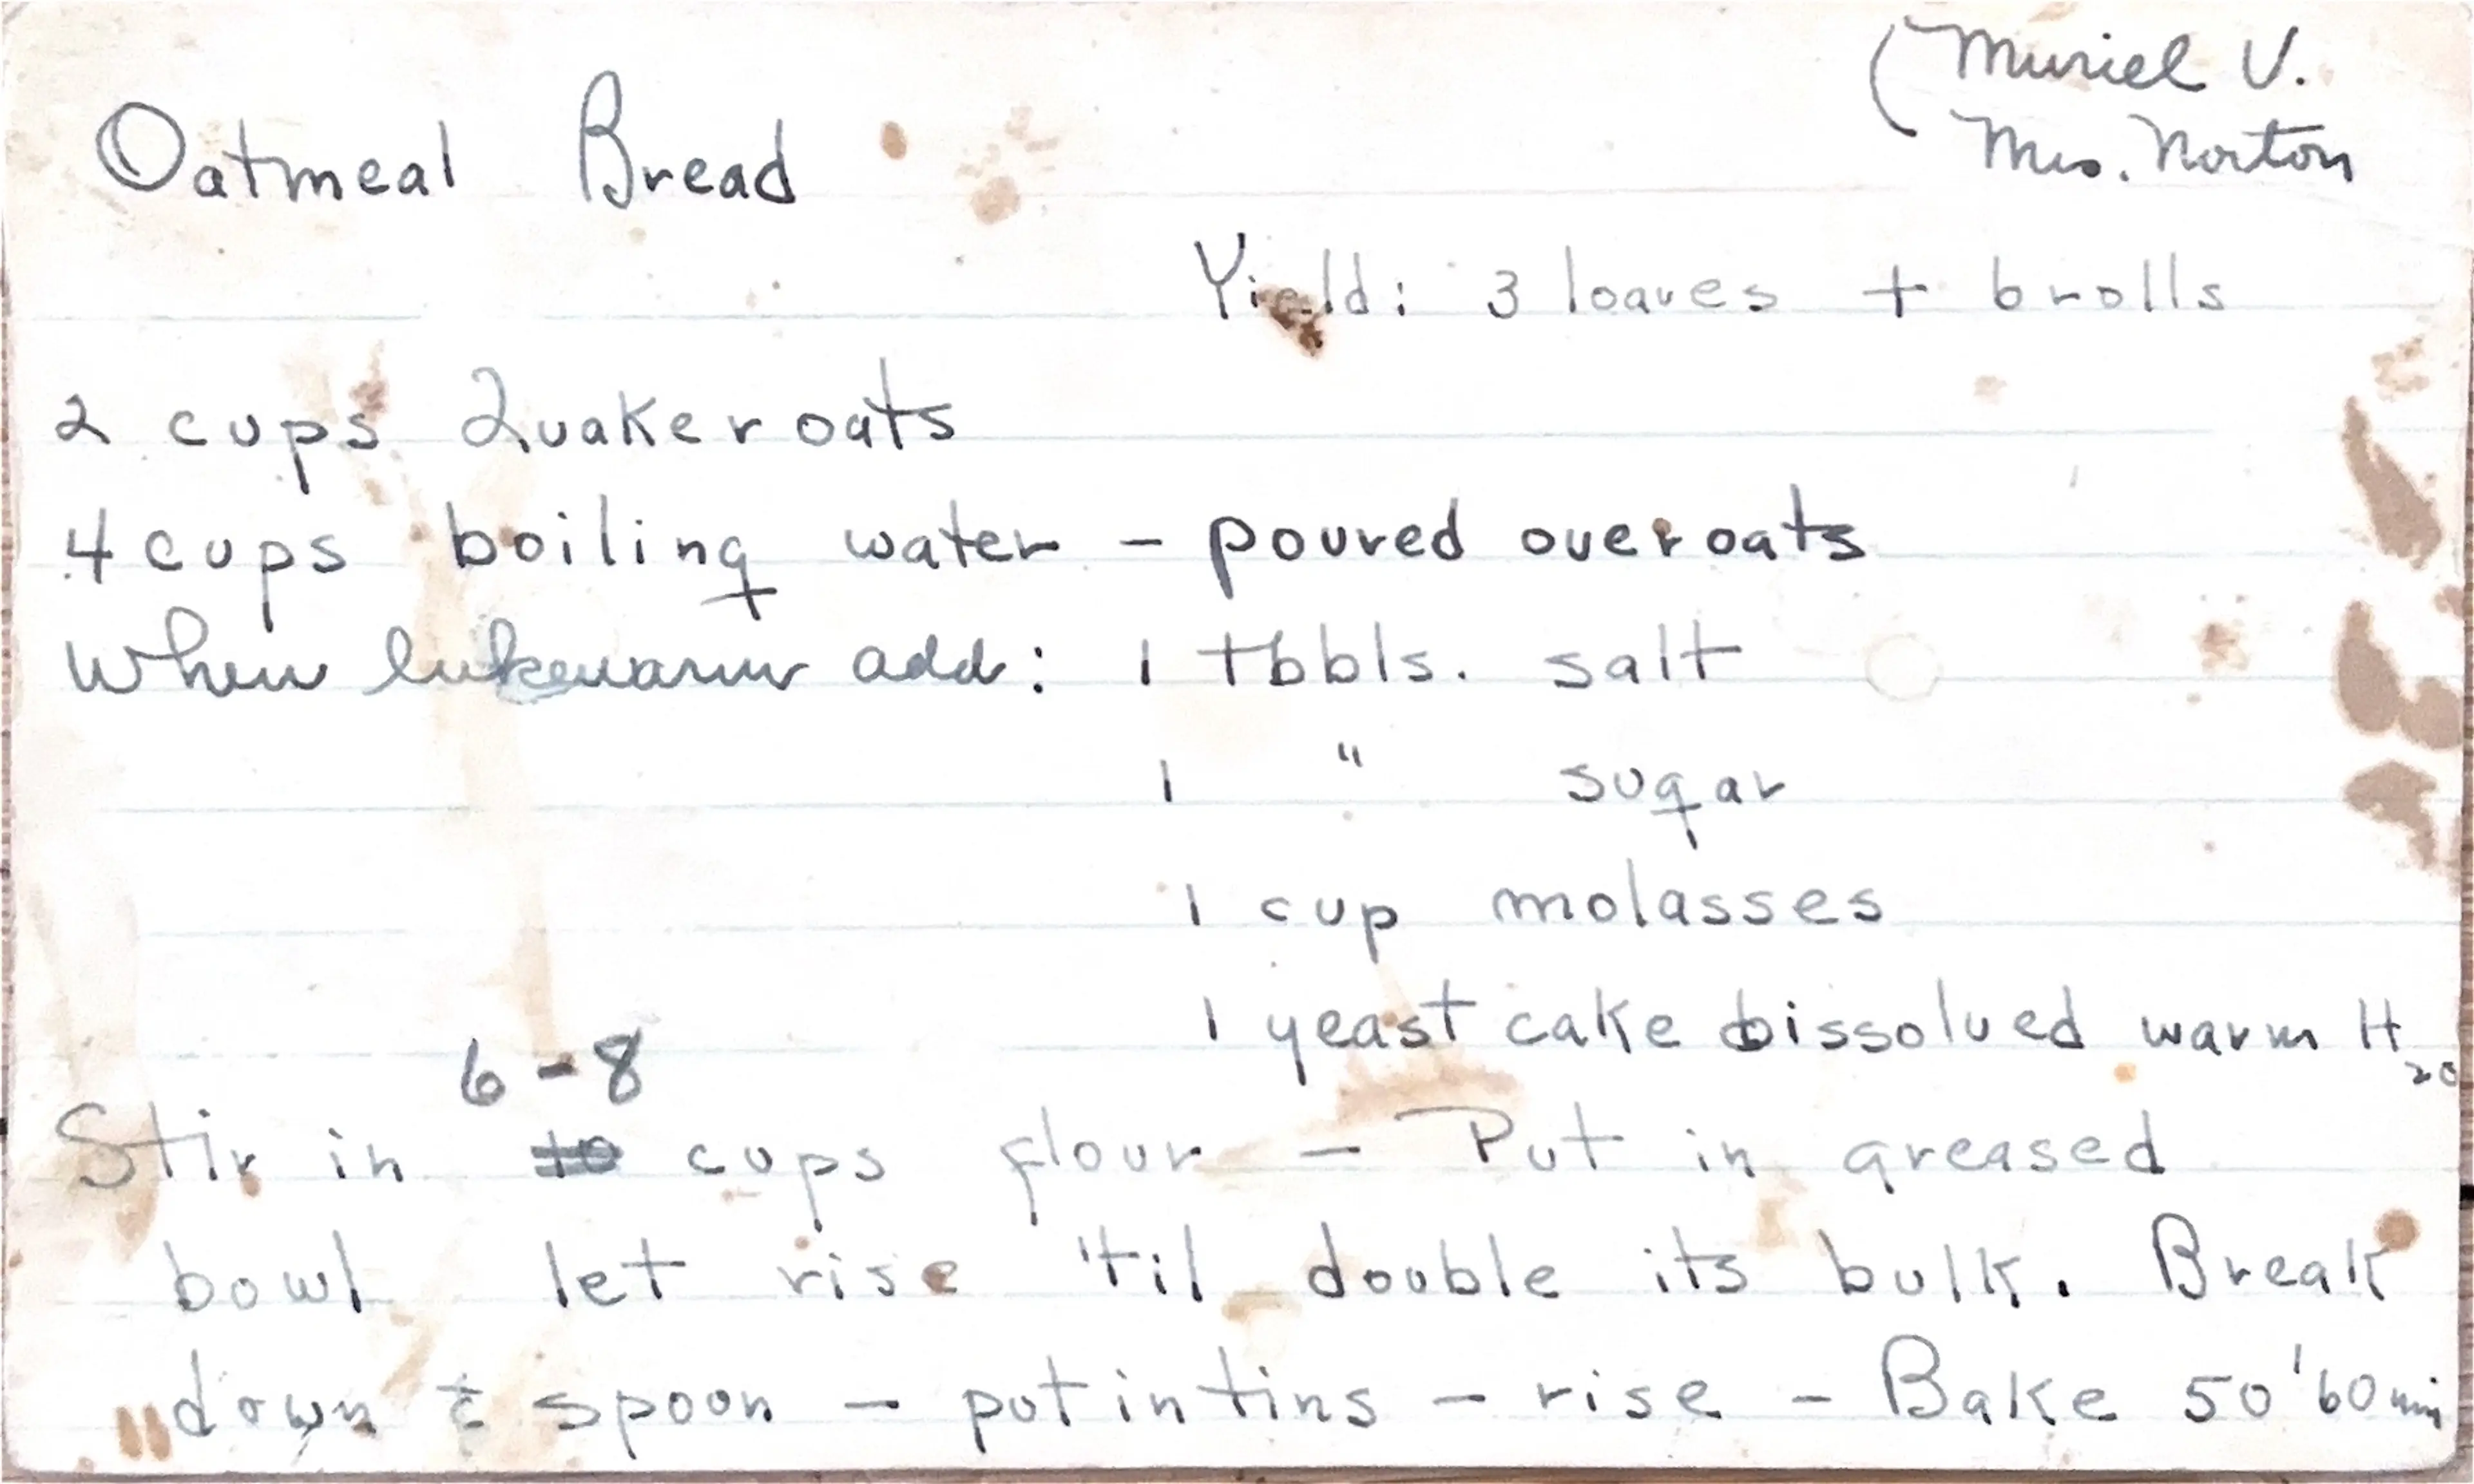 (Muriel V.
Mrs. Norton
Oatmeal Bread
Yield: 3 loaves + 6 rolls
2 cups Quaker oats
4 cups boiling water - poured over oats
When lukewarm add: 1 tbbls. salt
1 " sugar
1 cup molasses
1 yeast cake dissolved warm H20
6 - 8
Stir in 10 cups flour - Put in greased
bowl let rise 'til double its bulk. Break
down c̄ spoon - put in tins - rise - Bake 50'60 min